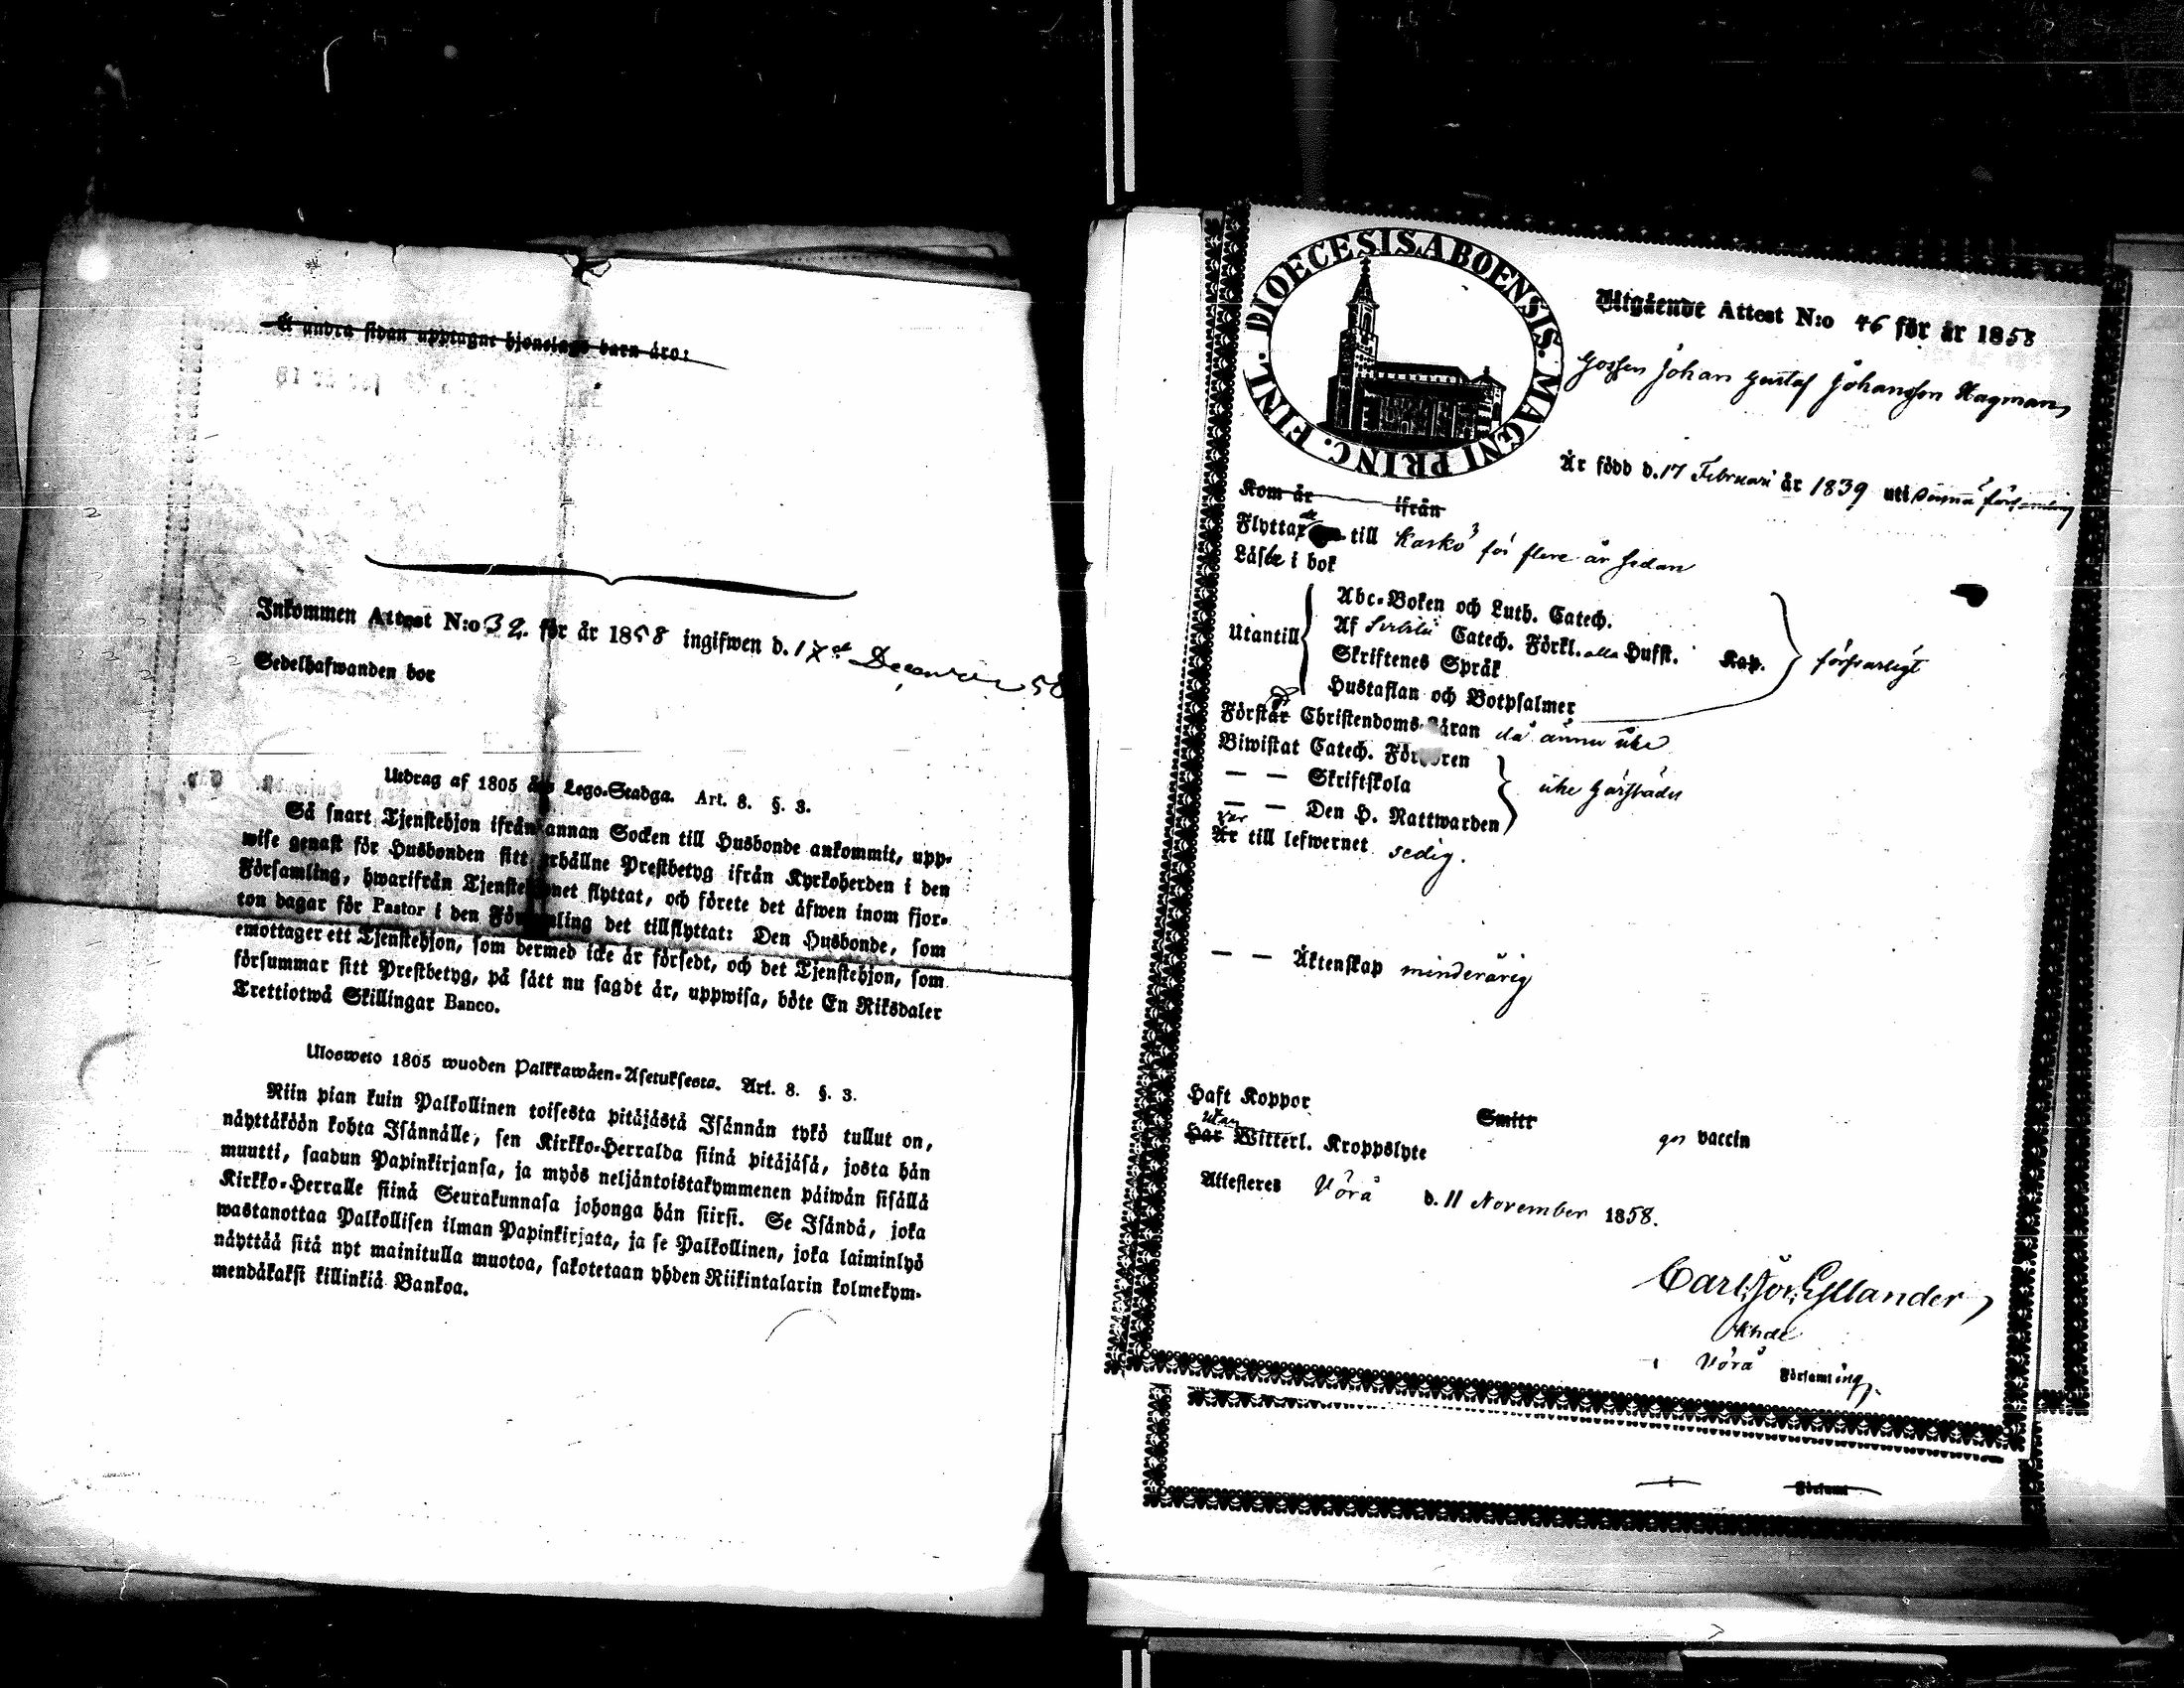 Å andra sidan upptagne hjonelags barn äro:
Inkommen Attest N:o 32. för år 1858 ingifwen d. 17 December 58
Sedelhafwanden bor
Utdrag af 1805 års Lego-Stadga. Art. 8. §. 3.
Så snart Tjenstehjon ifrån annan Socken till Husbonde ankommit, upp-
wise genast för Husbonden sitt erhållne Prestbetyg ifrån Kyrkoherden i den
Församling, hwarifrån Tjenstehjonet flyttat, och förete det äfwen inom fjor-
ton dagar för Pastor i den Församling det tillflyttat: Den Husbonde, som
emottager ett Tjenstehjon, som dermed icke är försedt, och det Tjenstehjon, som
försummar sitt Prestbetyg, på sätt nu sagdt är, uppwisa, böte En Riksdaler
Trettiotwå Skillingar Banco.
Ulosweto 1805 wuoden Palkkawäen-Asetuksesta. Art. 8. §. 3.
Niin pian kuin Palkollinen toisesta pitäjästä Isännän tykö tullut on,
näyttäköön kohta Isännälle, sen Kirkko-Herralda siinä pitäjäsä, josta hän
muutti, saadun Papinkirjansa, ja myös neljäntoistakymmenen päiwän sisällä
Kirkko-Herralle siinä Seurakunnasa johonga hän siirsi. Se Isändä, joka
wastanottaa Palkollisen ilman Papinkirjata, ja se Palkollinen, joka laiminlyö
näyttää sitä nyt mainitulla muotoa, sakotetaan yhden Riikintalarin kolmekym-
mendäkaksi killinkiä Bankoa.
DIOECESIS ABOENSIS. MAGNI PRINC. FINL.
Utgående Attest N:o 46 för år 1858
Gossen Johan Gustaf Johansson Hagman,
Är född d. 17 Februari år 1839 uti denna församling
Kom år ifrån
Flyttade till Kaskö för flere år sedan
Läste i bok
Abc-Boken och Luth. Catech.
Utantill Af Svebilii Catech. Förkl. alla Husst. Kap. försvarligt
Skriftenes Språk
Hustaflan och Botpsalmer
Förstår Christendoms-Läran då ännu icke
Biwistat Catech. Förhören
— — Skriftskola icke härstädes
— — Den H. Nattwarden
Är var till lefwernet sedig.
— — Äktenskap minderårig
Haft Koppor Smitt gn vaccin
Har utan Witterl. Kroppslyte
Attesteres Vörå d. 11 November 1858.
Carl Joh. Gyllander,
Khde
i Vörå Församling.
i Församl